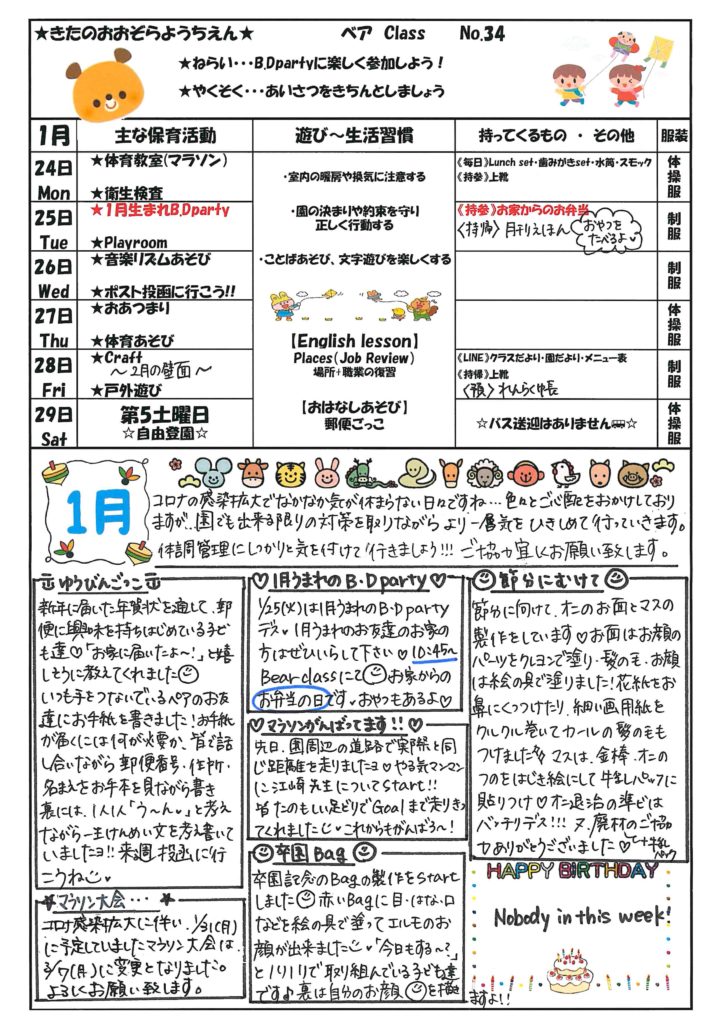 ★きたのおおぞらようちえん★　ベア Class　No.34
★ねらい・・・B.Dpartyに楽しく参加しよう！
★やくそく・・・あいさつをきちんとしましょう
1月　主な保育活動　遊び～生活習慣　持ってくるもの ・ その他　服装
24日 Mon
★体育教室(マラソン)
★衛生検査
《毎日》Lunch set・歯みがきset・水筒・スモック
《持参》上靴
体操服
25日 Tue
★1月生まれB.Dparty
★Playroom
《持参》お家からのお弁当
〈持帰〉月刊えほん
おやつをたべるよ♡
制服
26日 Wed
★音楽リズムあそび
★ポスト投函に行こう!!
制服
27日 Thu
★おあつまり
★体育あそび
体操服
28日 Fri
★Craft
～2月の壁面～
★戸外遊び
《LINE》クラスだより・園だより・メニュー表
《持帰》上靴
〈預〉れんらく帳
制服
29日 Sat
第5土曜日
☆自由登園☆
☆バス送迎はありません🚌☆
体操服
・室内の暖房や換気に注意する
・園の決まりや約束を守り
正しく行動する
・ことばあそび、文字遊びを楽しくする
【English lesson】
Places(Job Review)
場所+職業の復習
【おはなしあそび】
郵便ごっこ
1月
コロナの感染拡大でなかなか気が休まらない日々ですね…色々とご心配をおかけしており
ますが、園でも出来る限りの対策を取りながらより一層気をひきしめて行っていきます。
体調管理にしっかりと気を付けて行きましょう!!! ご協力宜しくお願い致します。
ゆうびんごっこ
新年に届いた年賀状を通して、郵
便に興味を持ちはじめている子ど
も達♡「お家に届いたよ～！」と嬉
しそうに教えてくれました☺
いつも手をつないでいるペアのお友
達にお手紙を書きました！お手紙
が届くには何が必要か、皆で話
し合いながら郵便番号・住所・
名まえをお手本を見ながら書き
裏には、1人1人「う～ん♡」と考え
ながら一生けんめい文を考え書いて
いましたヨ!! 来週投函に行
こうね
★マラソン大会…★
コロナ感染拡大に伴い、1/31(月)
に予定していましたマラソン大会は、
3/7(月)に変更となりました。
よろしくお願い致します。
♡1月うまれのB・D party♡
1/25(火)は1月うまれのB・D party
デス♡1月うまれのお友達のお家の
方はぜひいらして下さい♡10:45～
Bear classにて☺お家からの
お弁当の日です♡おやつもあるよ♡
♡マラソンがんばってます!!♡
先日、園周辺の道路で実際と同
じ距離を走りましたヨ♡やる気マンマン
に江崎先生についてstart!!
皆たのもしい足どりでGoalまで走りきっ
てくれました♡これからもがんばろ～！
☺卒園Bag☺
卒園記念のBagの製作をstart
しました☺赤いBagに目・はな・口
などを絵の具で塗ってエルモのお
顔が出来ました♡「今日もする～？」
とノリノリで取り組んでいる子ども達
です♪裏は自分のお顔☺を描き
ますよ!!
☺節分にむけて☺
節分に向けて、オニのお面とマスの
製作をしています♡お面はお顔の
パーツをクレヨンで塗り・髪の毛・お顔
は絵の具で塗りました！花紙をお
鼻にくっつけたり、細い画用紙を
クルクル巻いてカールの髪の毛も
つけました マスは、金棒・オニの
つのをはじき絵にして牛乳パックに
貼りつけ♡オニ退治の準ビは
バッチリデス!!! ヌ、廃材のご協
力ありがとうございました♡
HAPPY BIRTHDAY
Nobody in this week!